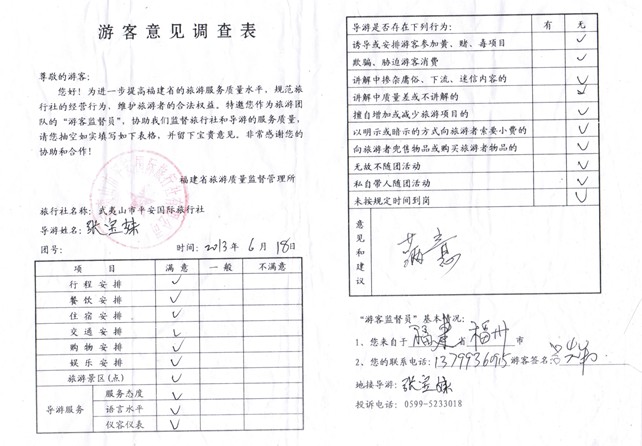 游客意见调查表
尊敬的游客:
您好!为进一步提高福建省的旅游服务质量水平,规范旅
行社的经营行为,维护旅游者的合法权益。特邀您作为旅游团
队的“游客监督员”,协助我们监督旅行社和导游的服务质量,
请您抽空如实填写如下表格,并留下宝贵意见。非常感谢您的
协助和合作!
福建省旅游质量监督管理所
旅行社名称:武夷山市平安国际旅行社
导游姓名:张宝妹
团号: 时间:2013年6月18日
项 目 满 意 一 般 不满意
行 程 安 排 ✓
餐 饮 安 排 ✓
住 宿 安 排 ✓
交 通 安 排 ✓
购 物 安 排 ✓
娱 乐 安 排 ✓
旅游景区(点) ✓
导游服务 服务态度 ✓
语言水平 ✓
仪容仪表 ✓
导游是否存在下列行为: 有 无
诱导或安排游客参加黄、赌、毒项目 ✓
欺骗、胁迫游客消费 ✓
讲解中掺杂庸俗、下流、迷信内容的 ✓
讲解中质量差或不讲解的 ✓
擅自增加或减少旅游项目的 ✓
以明示或暗示的方式向旅游者索要小费的 ✓
向旅游者兜售物品或购买旅游者物品的 ✓
无故不随团活动 ✓
私自带人随团活动 ✓
未按规定时间到岗 ✓
意见和建议 满意
“游客监督员”基本情况:
1、您来自于 福建 省 福州 市
2、您的联系电话:13799936915 游客签名:
地接导游:张宝妹
投诉电话:0599-5233018